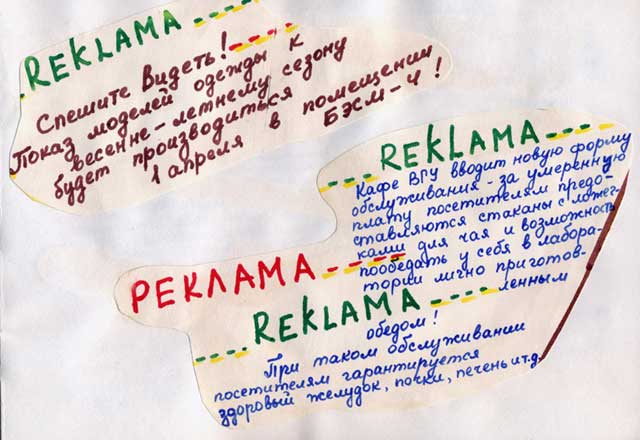 REKLAMA
Спешите Видеть!
Показ моделей одежды к
весенне-летнему сезону
будет производиться
1 апреля в помещении
БЭСМ-4!
REKLAMA
Кафе ВГУ вводит новую форму
обслуживания - за умеренную
плату посетителям предо-
ставляются стаканы с ложеч-
ками для чая и возможность
пообедать у себя в лабора-
тории лично приготов-
ленным
РЕКЛАМА
REKLAMA
обедом!
При таком обслуживании
посетителям гарантируется
здоровый желудок, почки, печень и т.д.